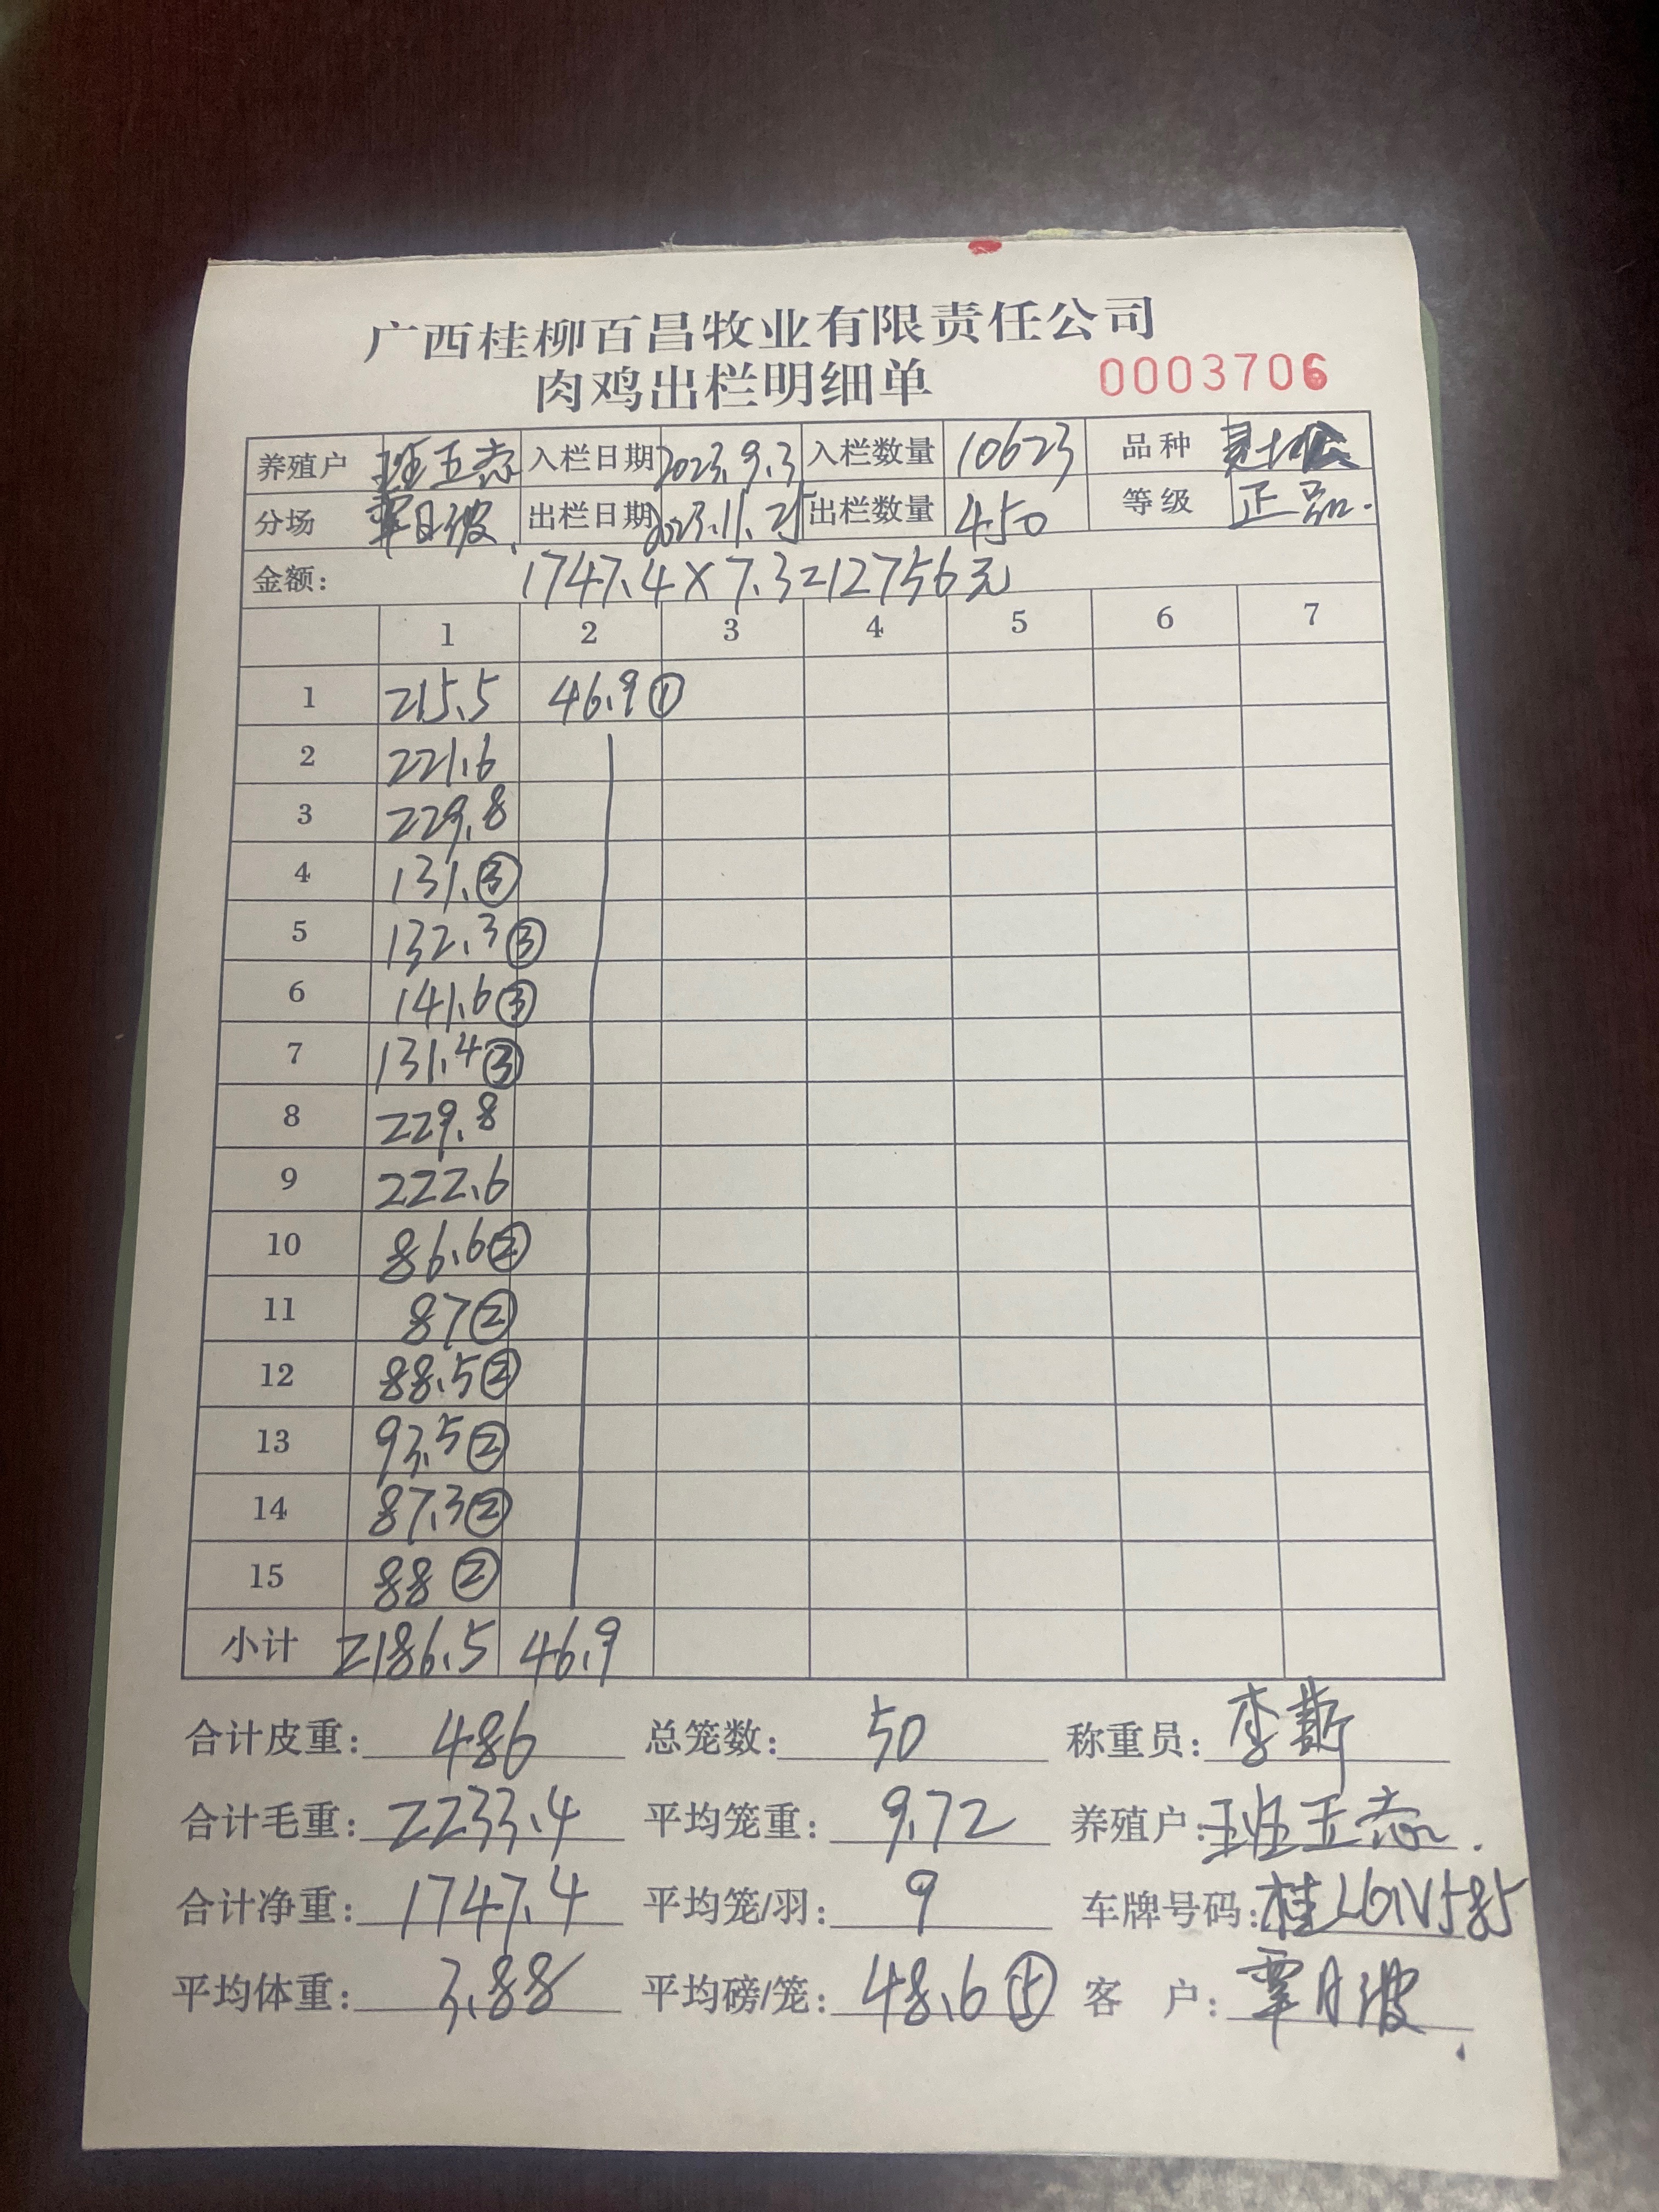 广西桂柳百昌牧业有限责任公司
肉鸡出栏明细单 0003706
养殖户 班玉杰 入栏日期 2023.9.3 入栏数量 10623 品种
分场 覃日波 出栏日期 2023.11.25 出栏数量 450 等级 正品.
金额: 1747.4×7.3=12756元
1 2 3 4 5 6 7
1 215.5 46.9①
2 221.6
3 229.8
4 131.③
5 132.3③
6 141.6③
7 131.4③
8 229.8
9 222.6
10 86.6②
11 87②
12 88.5②
13 93.5②
14 87.3②
15 88②
小计 2186.5 46.9
合计皮重: 486 总笼数: 50 称重员: 李
合计毛重: 2233.4 平均笼重: 9.72 养殖户: 班玉杰.
合计净重: 1747.4 平均笼/羽: 9 车牌号码:
平均体重: 3.88 平均磅/笼: 48.6⑤ 客 户: 覃日波